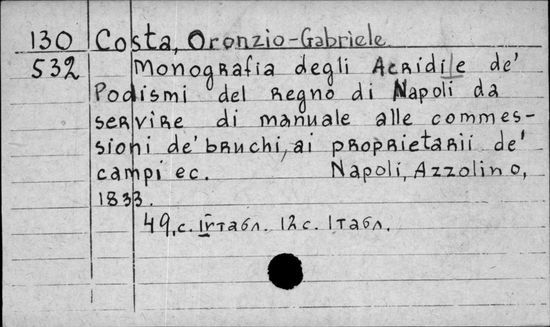 130 Costa, Oronzio-Gabriele
532 Monografia degli Acridile de'
Podismi del regno di Napoli da
servire di manuale alle commes-
sioni de' bruchi, ai proprietarii de'
campi ec. Napoli, Azzolino,
1833.
49, с. IV табл. 12 с. 1 табл.